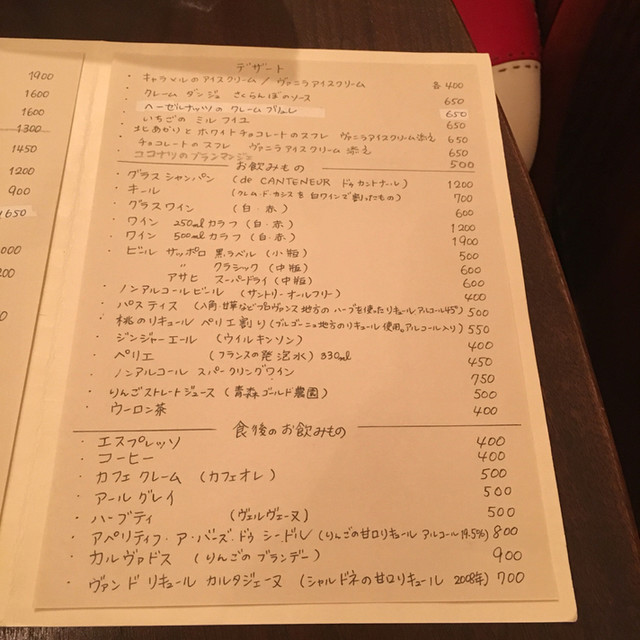 1900
1600
1600
1300
1450
1200
900
1650
デザート
・キャラメルのアイスクリーム / ヴァニラアイスクリーム 各400
・クレーム ダンジュ さくらんぼのソース 650
・ヘーゼルナッツの クレームブリュレ 650
・いちごの ミル フイユ 650
・北あかりと ホワイトチョコレートのスフレ ヴァニラアイスクリーム添え 650
・チョコレートの スフレ ヴァニラアイスクリーム 添え 650
・ココナツのブランマンジェ 500
お飲みもの
・グラス シャンパン (de CANTENEUR ドゥ カントナール) 1200
・キール (クレム・ド・カシスを白ワインで割ったもの) 700
・グラスワイン (白・赤) 600
・ワイン 250ml カラフ (白・赤) 1200
・ワイン 500ml カラフ (白・赤) 1900
・ビール サッポロ 黒ラベル (小瓶) 500
〃 クラシック (中瓶) 600
アサヒ スーパードライ (中瓶) 600
・ノンアルコールビール (サントリー オールフリー) 400
・パスティス (八角・甘草などプロヴァンス地方の ハーブを使ったリキュール アルコール45°) 500
・桃のリキュール ペリエ割り (ブルゴーニュ地方のリキュール使用。アルコール入り) 550
・ジンジャーエール (ウイルキンソン) 400
・ペリエ (フランスの発泡水) 330ml 450
・ノンアルコール スパークリングワイン 750
・りんごストレートジュース (青森ゴールド農園) 500
・ウーロン茶 400
食後のお飲みもの
・エスプレッソ 400
・コーヒー 400
・カフェ クレーム (カフェオレ) 500
・アール グレイ 500
・ハーブティ (ヴェルヴェーヌ) 500
・アペリティフ・ア・バーズ・ドゥ シードル (りんごの甘口リキュール アルコール14.5%) 800
・カルヴァドス (りんごのブランデー) 900
・ヴァン ド リキュール カルタジェーヌ (シャルドネの甘口リキュール 2008年) 700